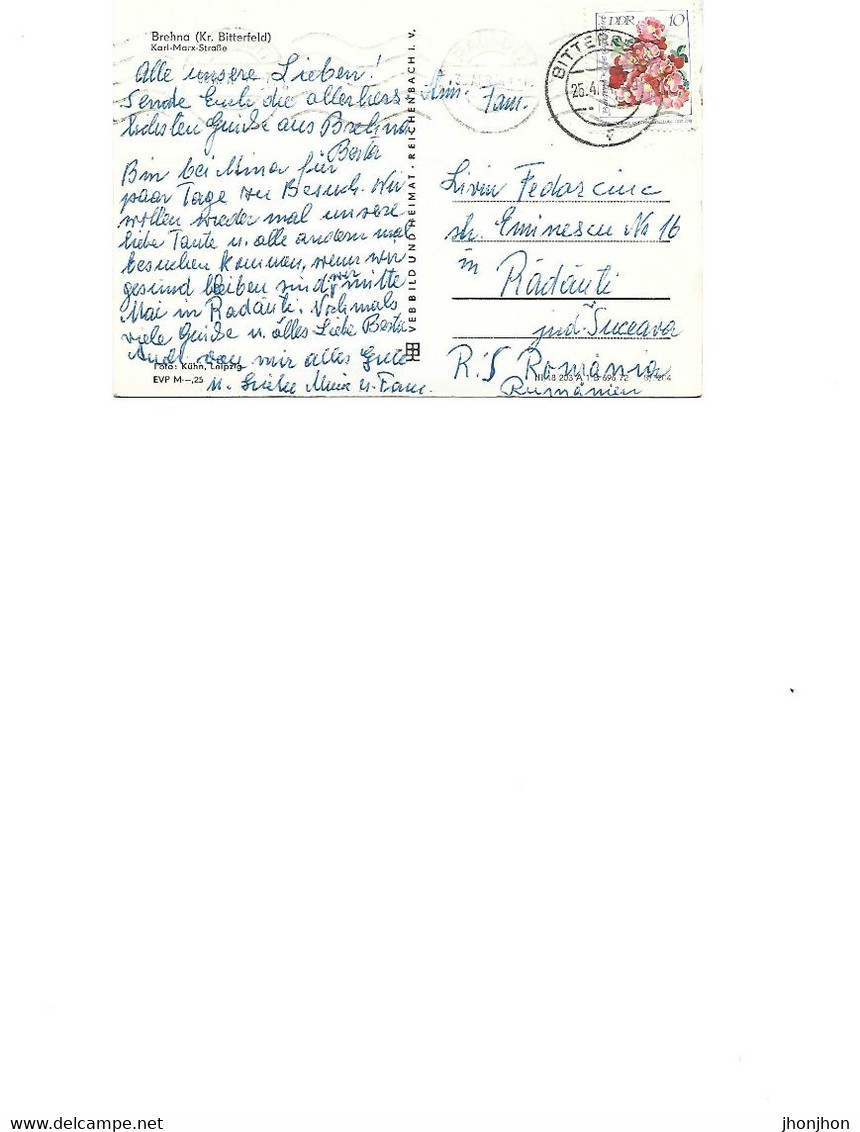 Brehna (Kr. Bitterfeld)
Karl-Marx-Straße
Alle unsere Lieben!
Sende Euch die allerherz-
lichsten Grüße aus Brehna
Berta
Bin bei Mina für
paar Tage zu Besuch. Wir
wollen wieder mal unsere
liebe Tante u. alle andern mal
besuchen kommen, wenn wir
gesund bleiben sind wir mitte
Mai in Radăuti. Nochmals
viele Grüße u. alles Liebe Berta
Auch von mir alles Gute
u. Liebe Mina u. Fam.
Foto: Kühn, Leipzig
EVP M –,25
VEB BILD UND HEIMAT · REICHENBACH I. V.
DDR 10
BITTERF
26.4.
Fam.
Liviu Fedorciuc
str. Eminescu No 16
in Rădăuti
jud. Suceava
R.S România
Rumänien
III/18 203 A 1 B 696 72
jhonjhon